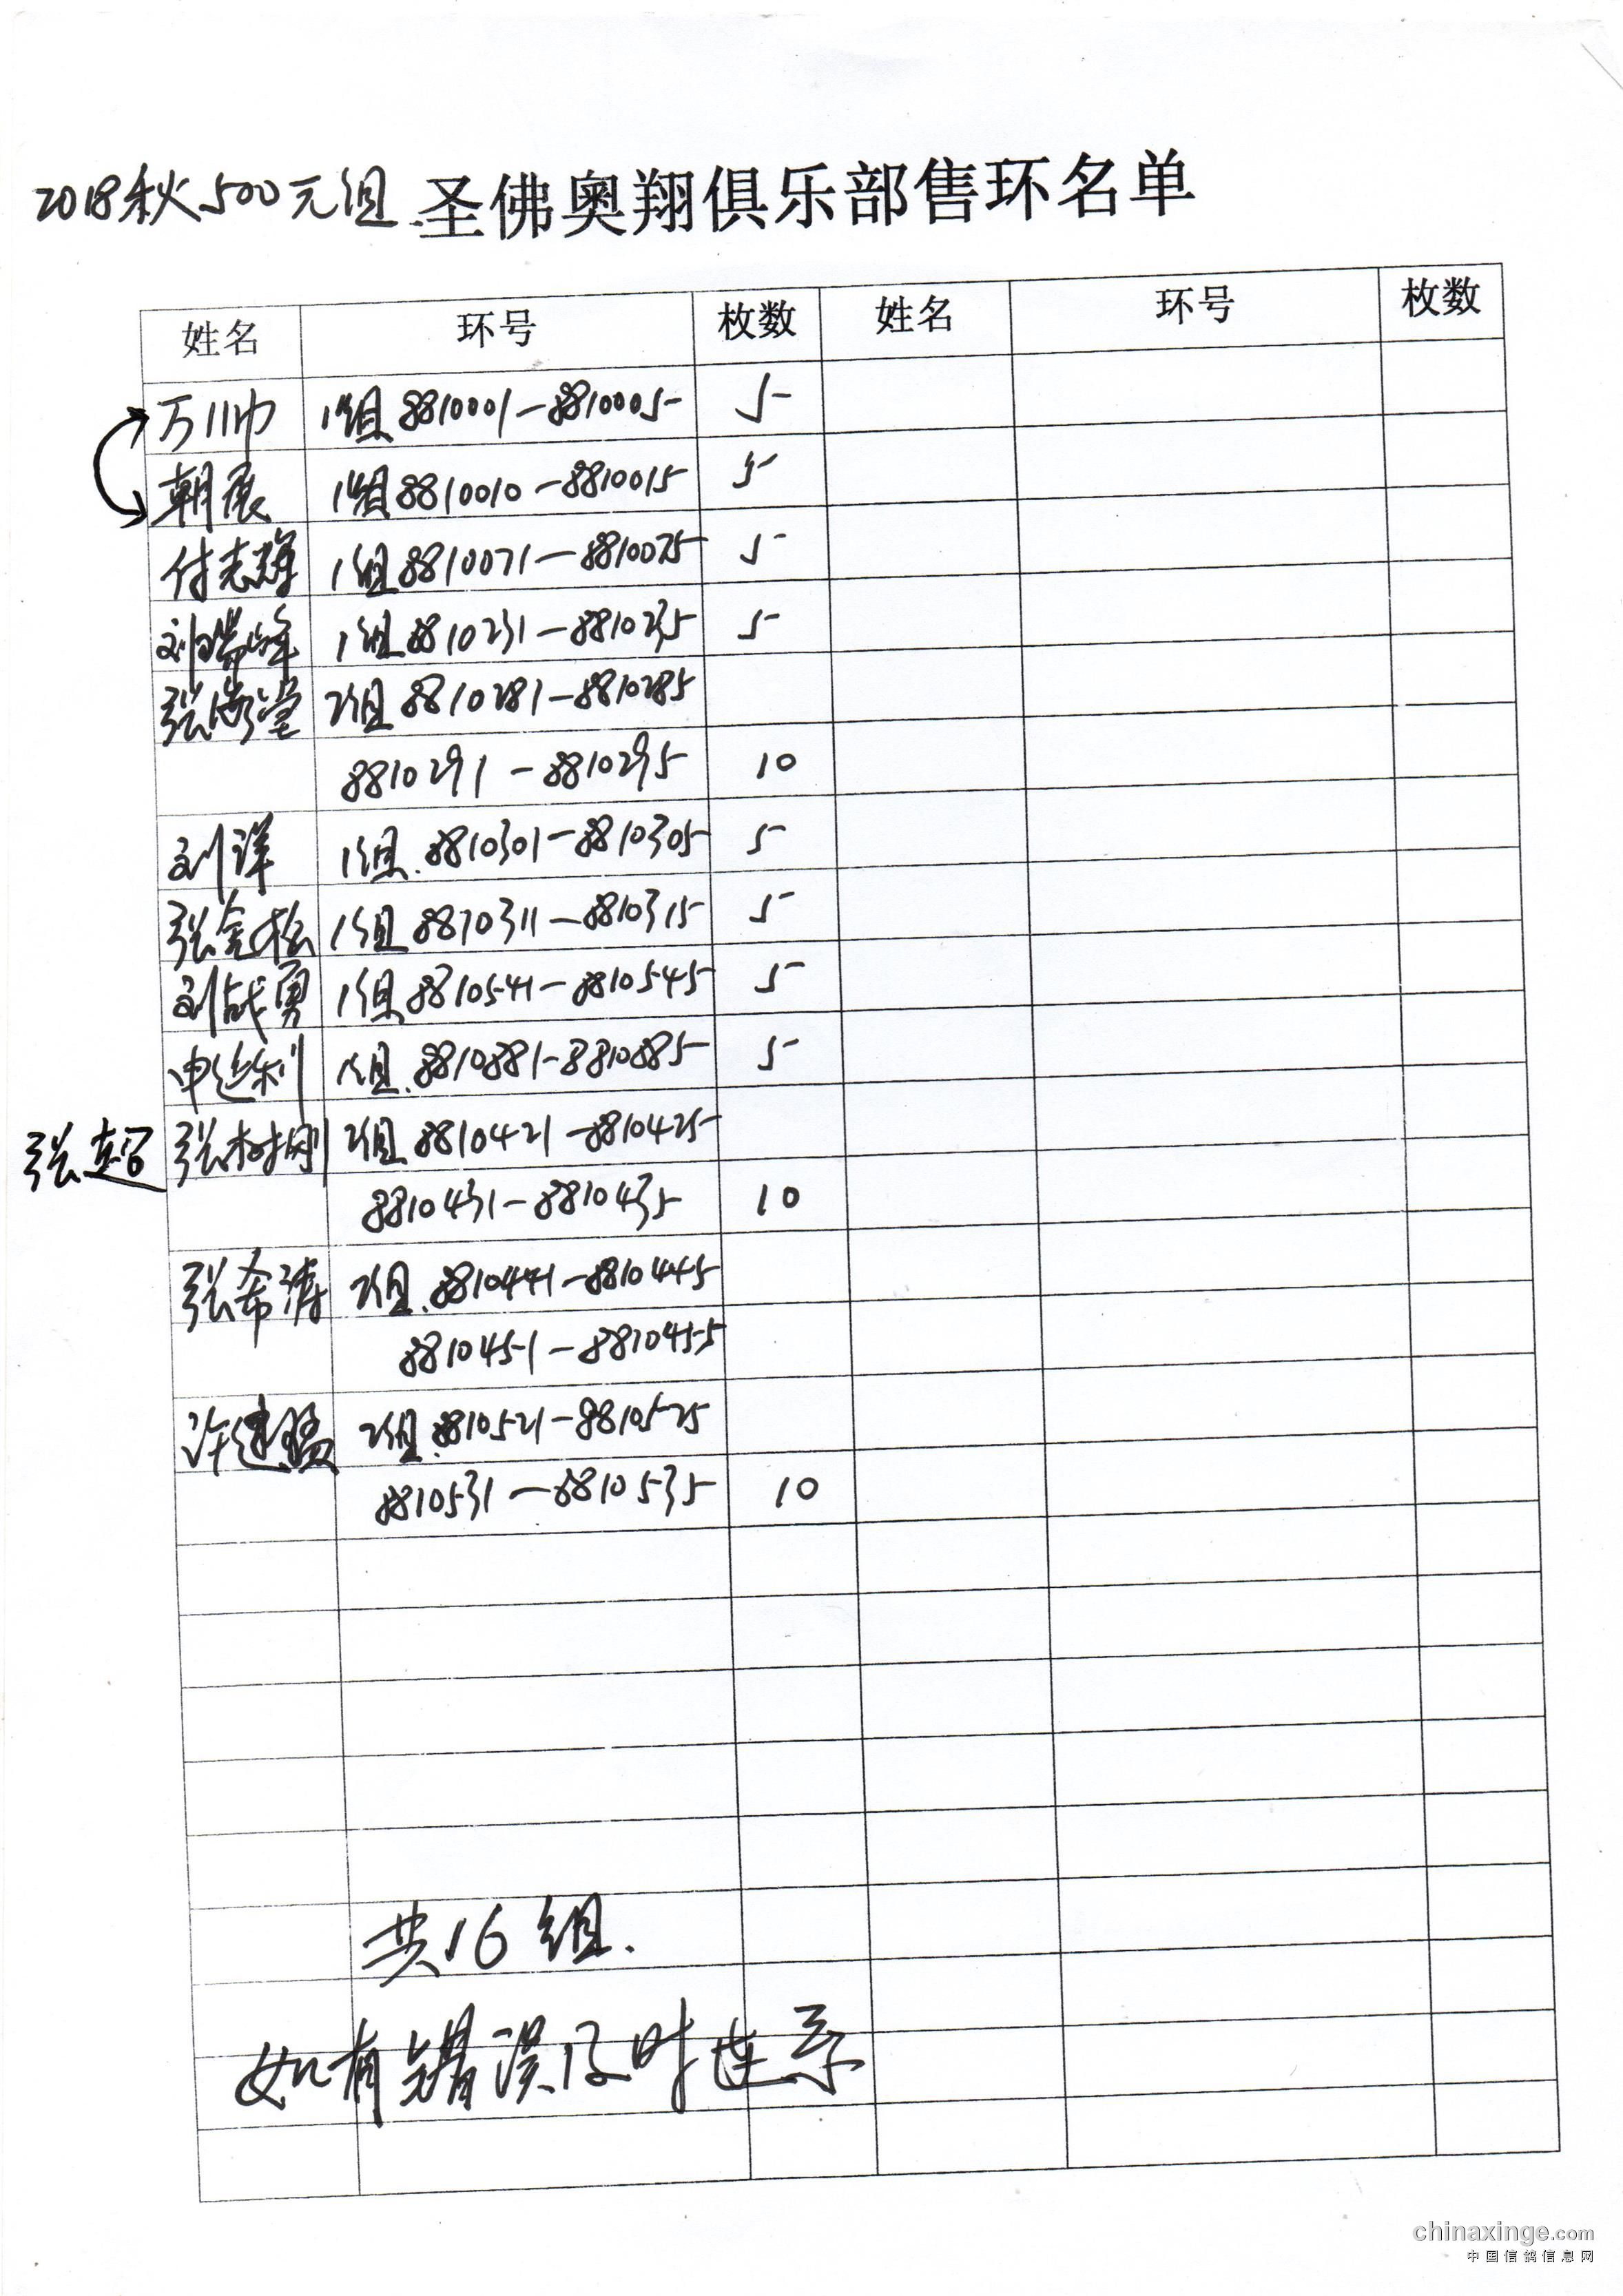 2018秋500元组 圣佛奥翔俱乐部售环名单
姓名 环号 枚数 姓名 环号 枚数
万川巾 1组8810001-8810005 5
朝展 1组8810010-8810015 5
付志辉 1组8810071-8810075 5
刘瑞峰 1组8810231-8810235 5
张海堂 2组8810281-8810285
8810291-8810295 10
刘洋 1组.8810301-8810305 5
张金松 1组8810311-8810315 5
刘战勇 1组8810541-8810545 5
申运利 1组.8810881-8810885 5
张超 张树刚 2组8810421-8810425
8810431-8810435 10
张希涛 2组.8810441-8810445
8810451-8810455
许建猛 2组.8810521-8810525
8810531-8810535 10
共16组.
如有错误及时连系
chinaxinge.com
中国信鸽信息网